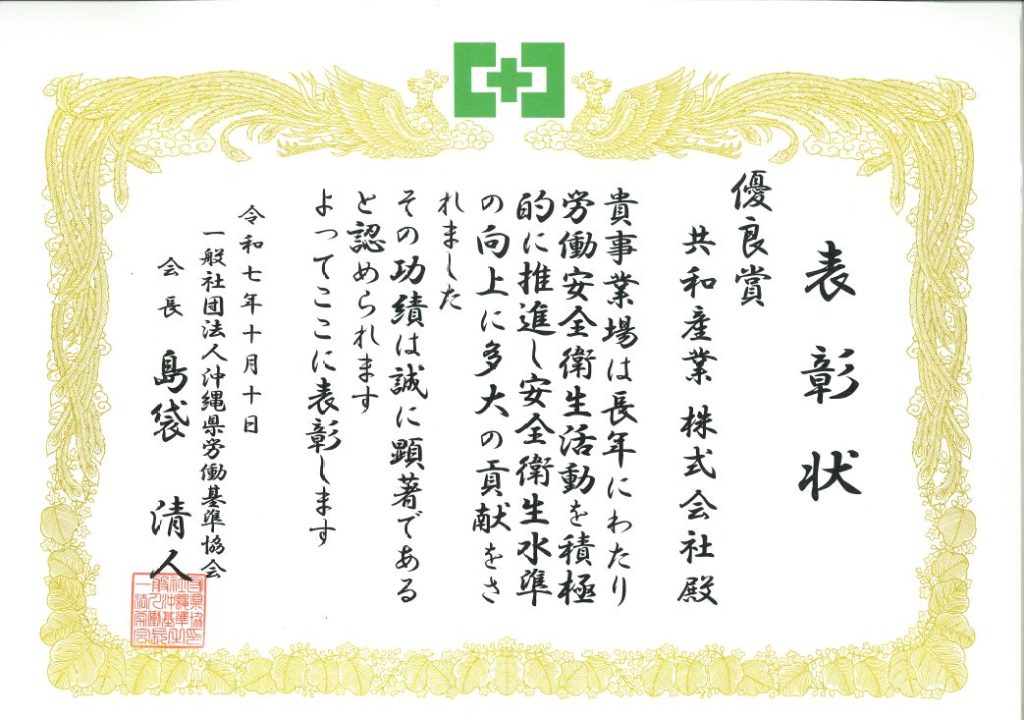 表彰状
優良賞
共和産業 株式会社 殿
貴事業場は長年にわたり
労働安全衛生活動を積極
的に推進し安全衛生水準
の向上に多大の貢献をさ
れました
その功績は誠に顕著である
と認められます
よってここに表彰します
令和七年十月十日
一般社団法人沖縄県労働基準協会
会長 島袋 清人